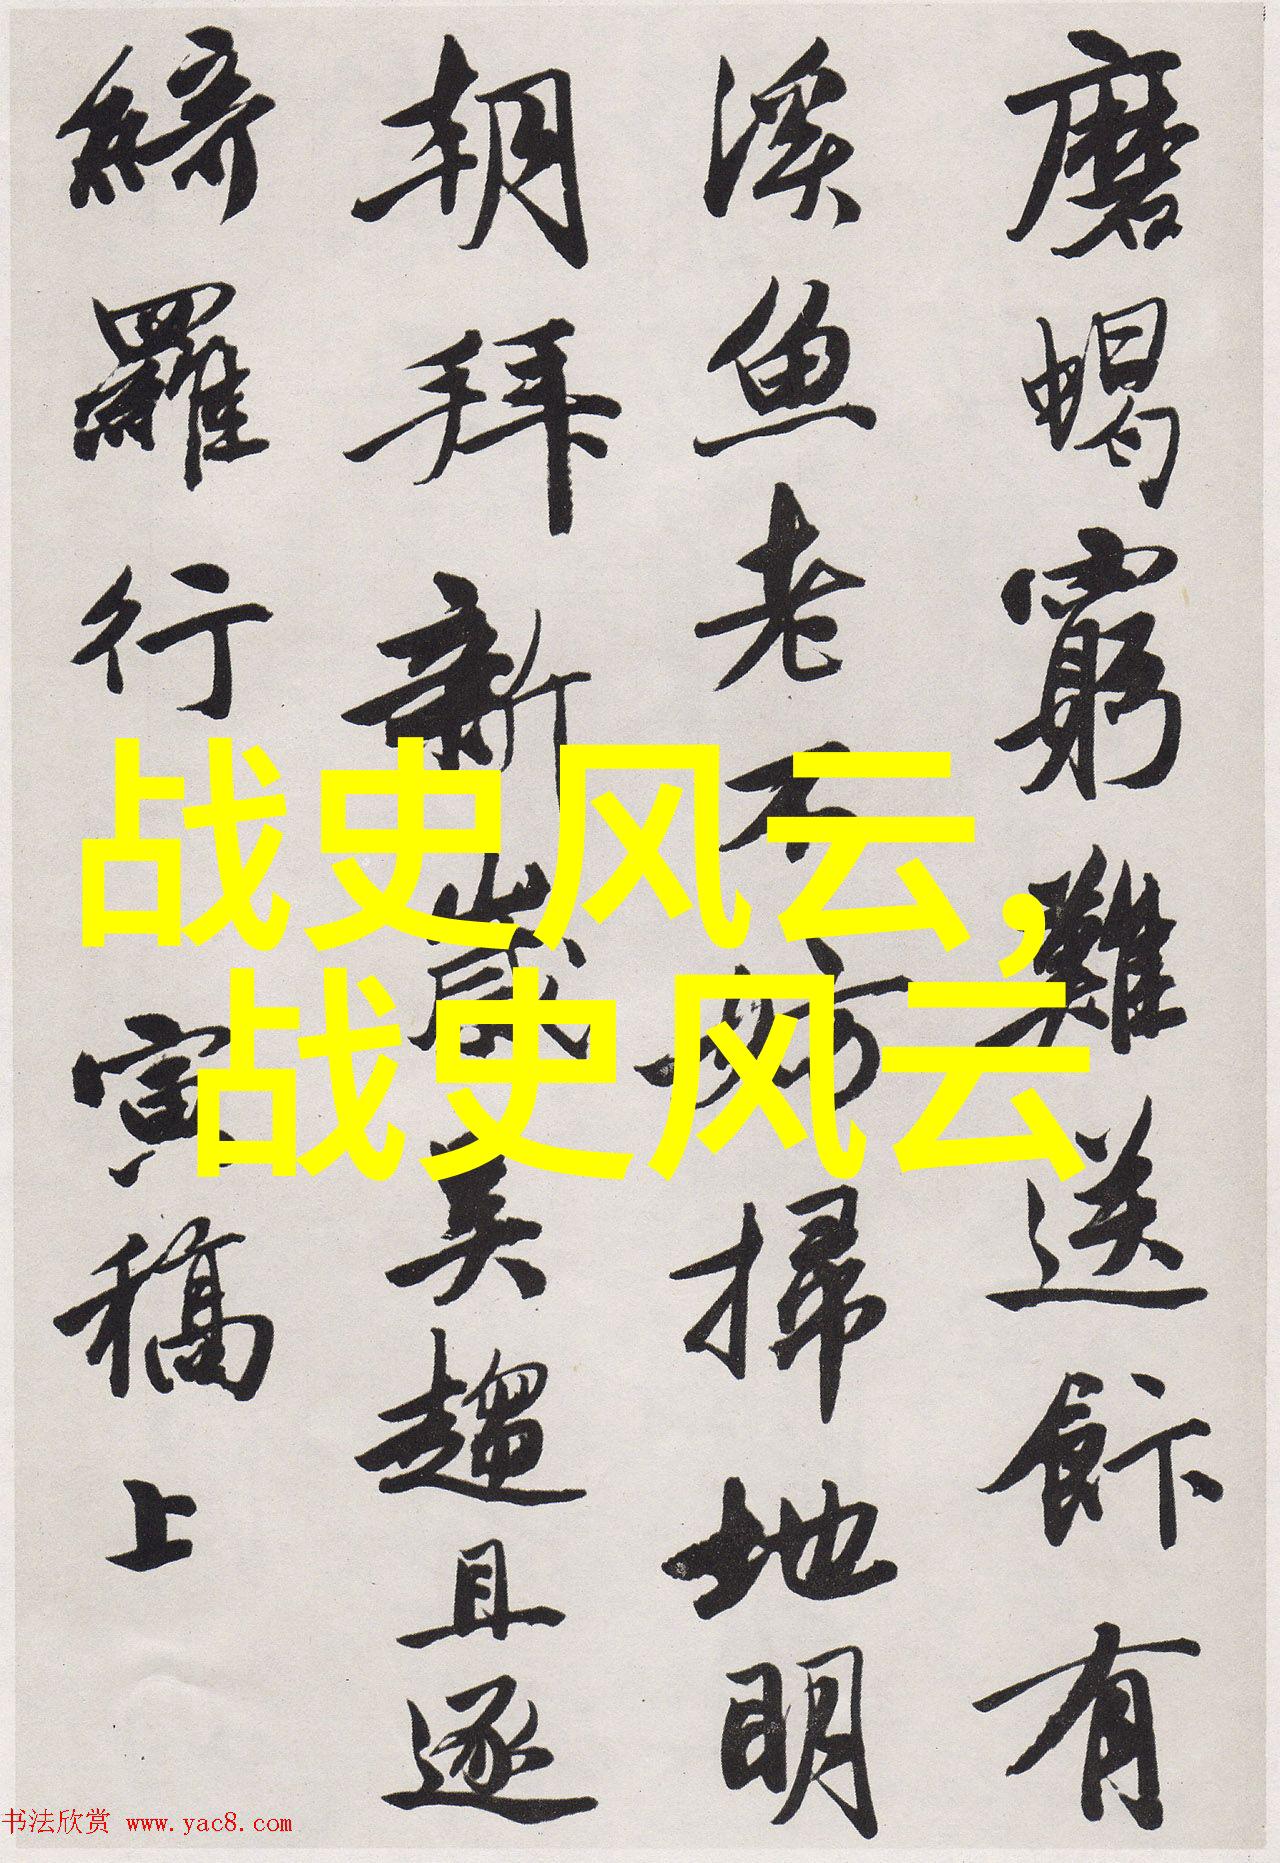 磨蝎窮難送餅有
溪魚老不妨掃地明
朝拜新歲美趨且逐
綺羅行 寅稿上
战史风云,
战史风云
书法欣赏 www.yac8.com